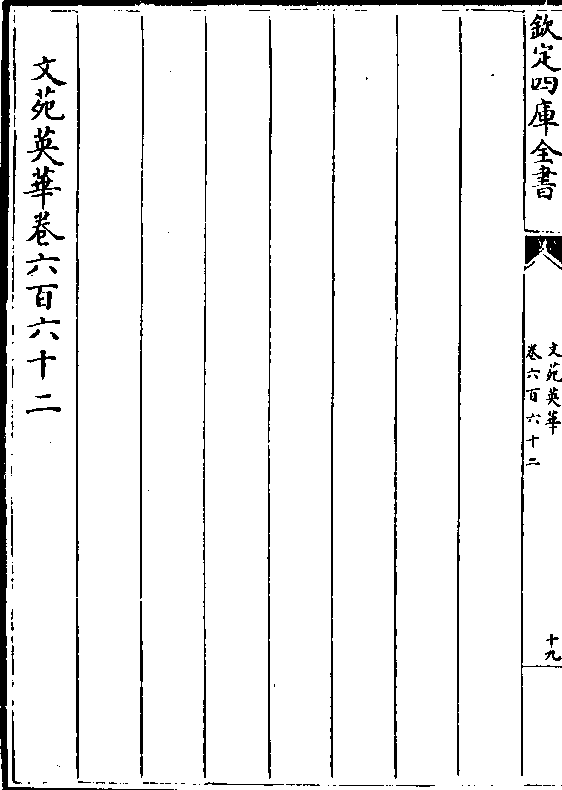 欽定四庫全書
文苑英華
卷六百六十二
十九
文苑英華卷六百六十二